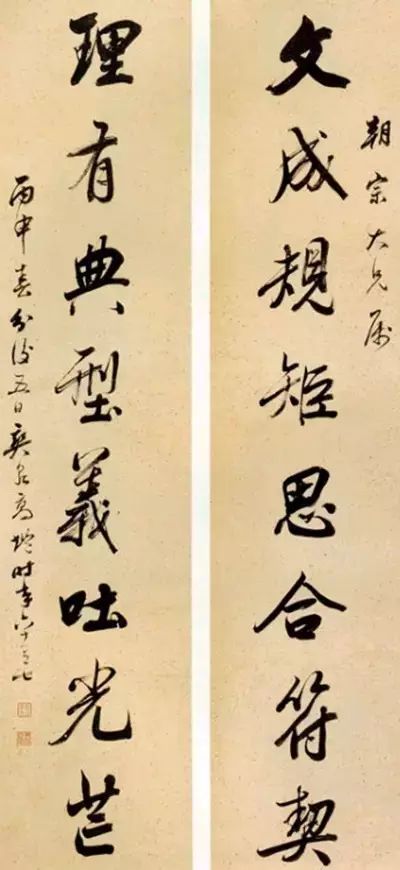 朝宗大兄属
文成規矩思合符契
理有典型義吐光芒
丙申春分後五日爽泉高塏時年六十